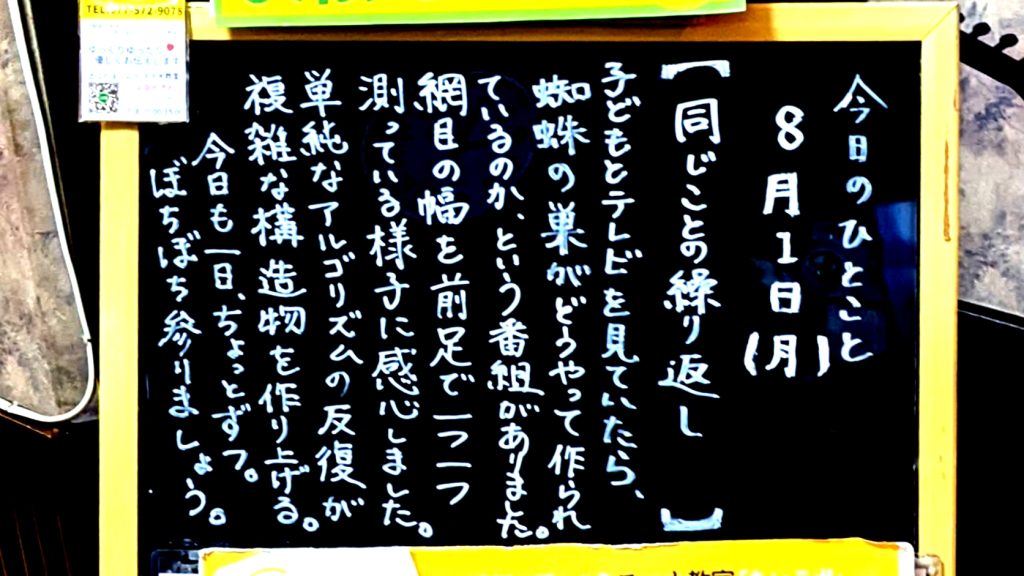 今日のひとこと
8月1日(月)
【同じことの繰り返し】
子どもとテレビを見ていたら、
蜘蛛の巣がどうやって作られ
ているのか、という番組がありました。
網目の幅を前足で一つ一つ
測っている様子に感心しました。
単純なアルゴリズムの反復が
複雑な構造物を作り上げる。
今日も一日、ちょっとずつ。
ぼちぼち参りましょう。
TEL:077-572-9075
ゆっくりゆったり♥
優しくお伝えします